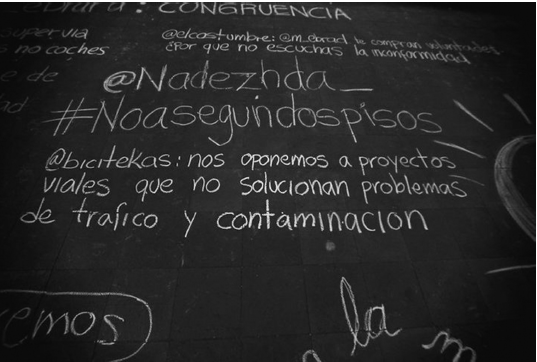 CONGRUENCIA
super via @elcostumbre: @m_ebrad le compran voluntades
no coches ¿Por que no escuchas la inconformidad
e de @Nadezhda_
#Noasegundospisos
@bicitekas: nos oponemos a proyectos
viales que no solucionan problemas
de trafico y contaminacion
emos
la
m